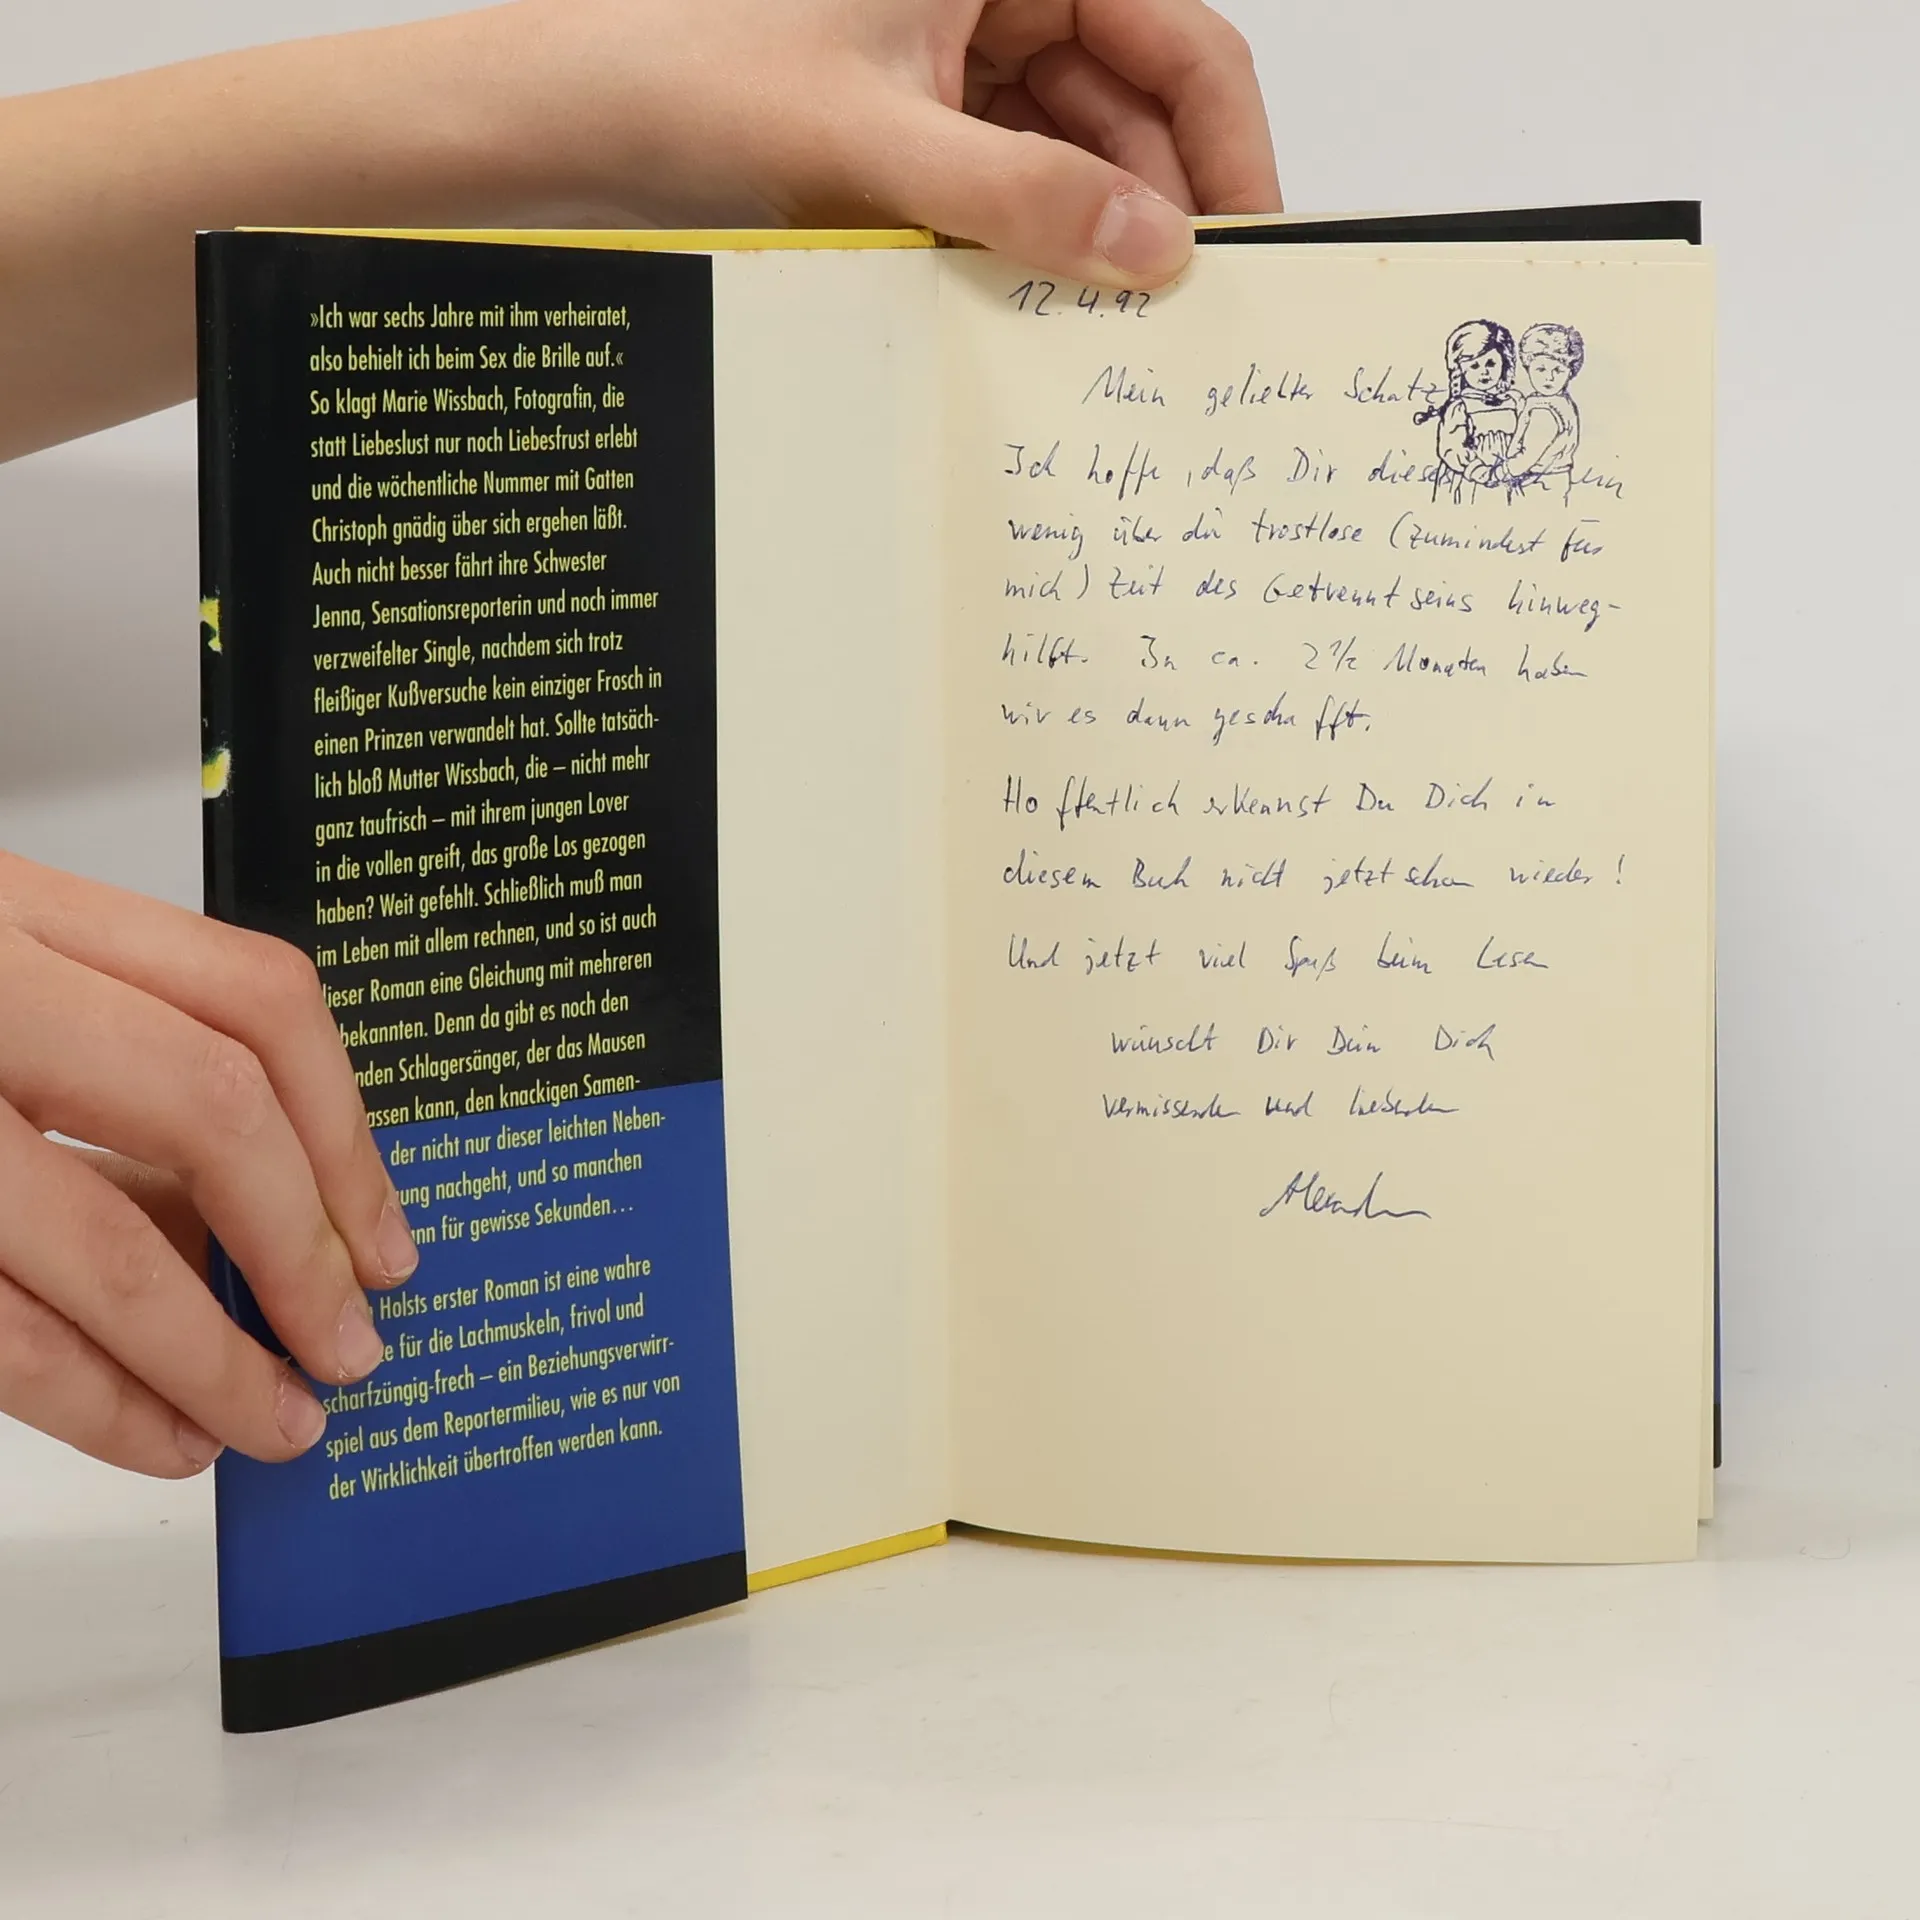 »Ich war sechs Jahre mit ihm verheiratet,
also behielt ich beim Sex die Brille auf.«
So klagt Marie Wissbach, Fotografin, die
statt Liebeslust nur noch Liebesfrust erlebt
und die wöchentliche Nummer mit Gatten
Christoph gnädig über sich ergehen läßt.
Auch nicht besser fährt ihre Schwester
Jenna, Sensationsreporterin und noch immer
verzweifelter Single, nachdem sich trotz
fleißiger Kußversuche kein einziger Frosch in
einen Prinzen verwandelt hat. Sollte tatsäch-
lich bloß Mutter Wissbach, die – nicht mehr
ganz taufrisch – mit ihrem jungen Lover
in die vollen greift, das große Los gezogen
haben? Weit gefehlt. Schließlich muß man
im Leben mit allem rechnen, und so ist auch
dieser Roman eine Gleichung mit mehreren
bekannten. Denn da gibt es noch den
nden Schlagersänger, der das Mausen
assen kann, den knackigen Samen-
der nicht nur dieser leichten Neben-
ung nachgeht, und so manchen
ann für gewisse Sekunden...
Holsts erster Roman ist eine wahre
für die Lachmuskeln, frivol und
scharfzüngig-frech – ein Beziehungsverwirr-
spiel aus dem Reportermilieu, wie es nur von
der Wirklichkeit übertroffen werden kann.
12.4.92
Mein geliebter Schatz
Ich hoffe, daß Dir dieses Buch ein
wenig über die trostlose (zumindest für
mich) Zeit des Getrenntseins hinweg-
hilft. In ca. 2 1/2 Monaten haben
wir es dann geschafft.
Hoffentlich erkennst Du Dich in
diesem Buch nicht jetzt schon wieder!
Und jetzt viel Spaß beim Lesen
wünscht Dir Dein Dich
vermissender und liebender